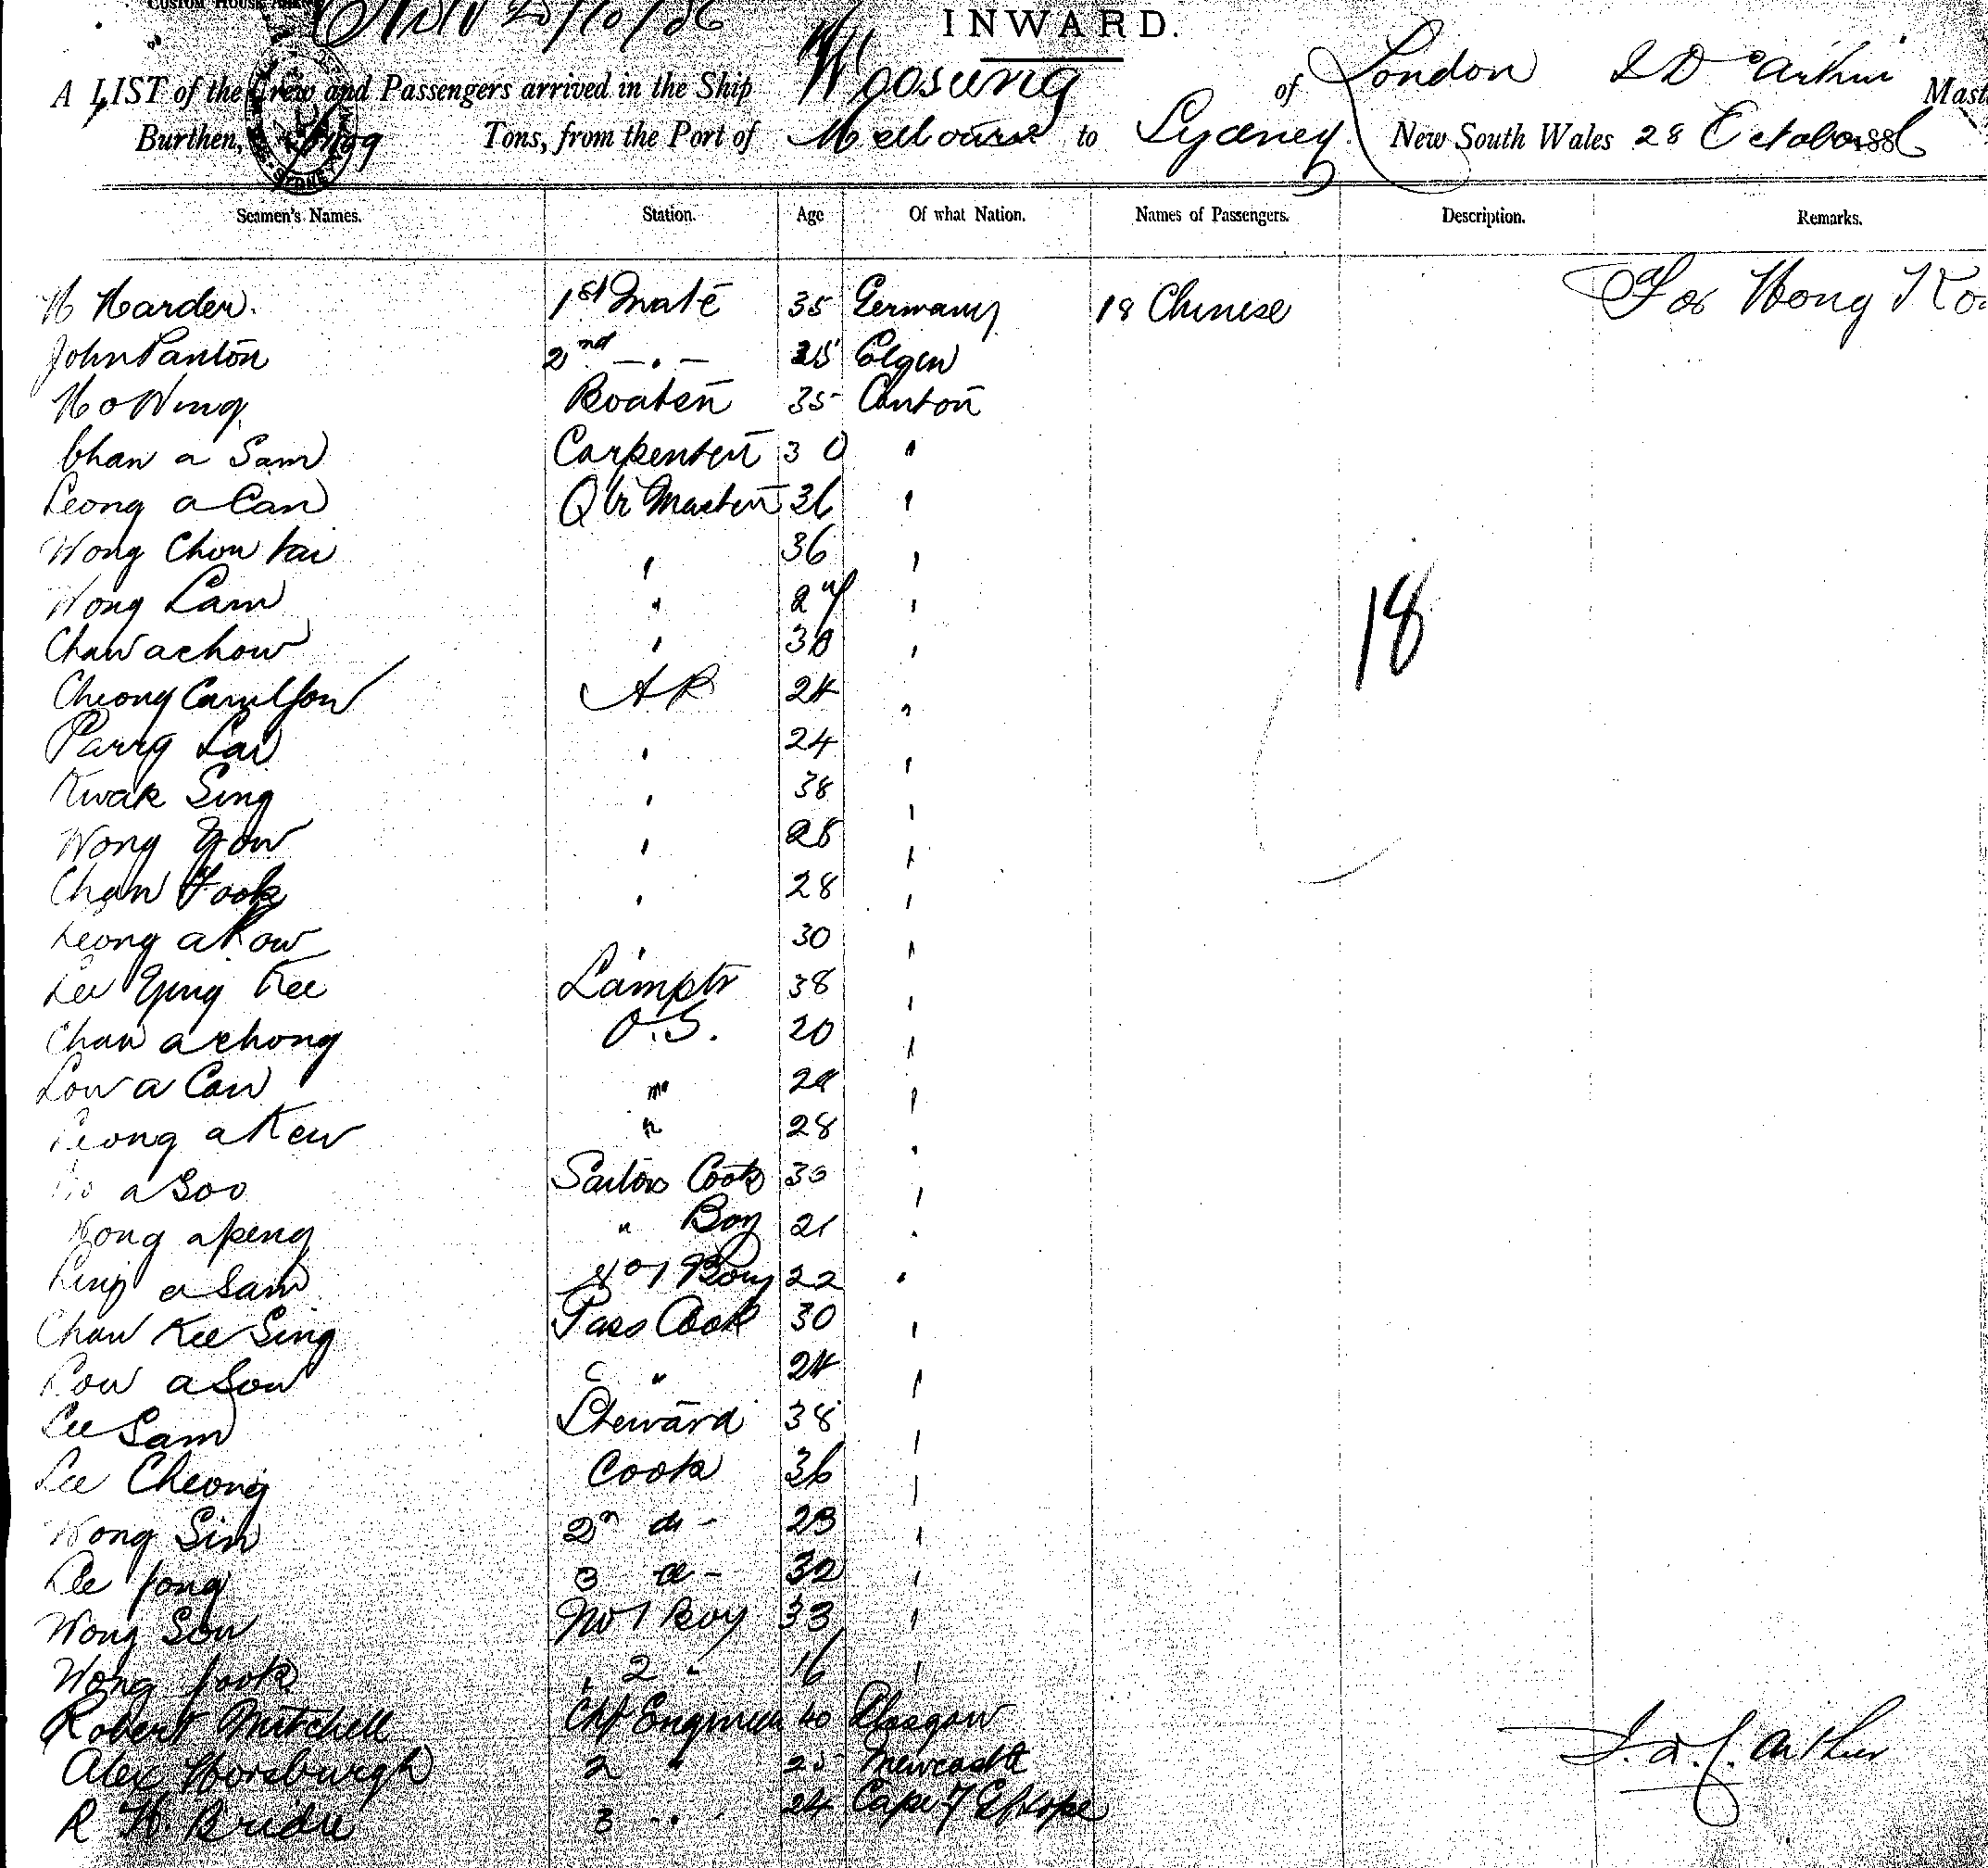 CUSTOM HOUSE
INWARD.
A LIST of the Crew and Passengers arrived in the Ship Woosung of London Mast
Burthen, Tons, from the Port of Melbourne to Sydney New South Wales 28 October 1886
Seamen's Names. Station. Age Of what Nation. Names of Passengers. Description. Remarks.
H Harder. 1st Mate 35 Germany 18 Chinese For Hong Ko
John Panton 2nd — . — 25 Elgin
Ho Wing 35 Canton
Chan a Sam Carpenter 30 "
Leong a Can Qtr Master 36 "
Wong Chow tai " 36 "
Wong Lam " 27 "
Chan achow " 38 "
Cheong AB 24 "
Lai " 24 "
Kwak Sing " 38 "
Wong Yow " 28 "
Chan Fook " 28 "
Leong a Kow " 30 "
Lee Ying Kee Lamptr 38 "
Chan a chong O.S. 20 "
Low a Can " "
Leong a Kew " 28 "
a Soo Sailors Cook 30 "
Wong apeng " Boy 21 "
a Sam Boy 22 "
Chan Kee Sing Pass Cook 30 "
Low a Sow " 24 "
Lee Sam Steward 38 "
Lee Cheong Cook 36 "
Wong Sin 2n do - 23 "
Lee fong 3 do - 32 "
Wong Sow No 1 Boy 33 "
Wong fook " 2 " 16 "
18
Robert Mitchell Chf Engineer 40 Glasgow
Alex Horsburgh 2 " 25 Newcastle
R H Bridie 3 " 24 Cape of G Hope
Arthur